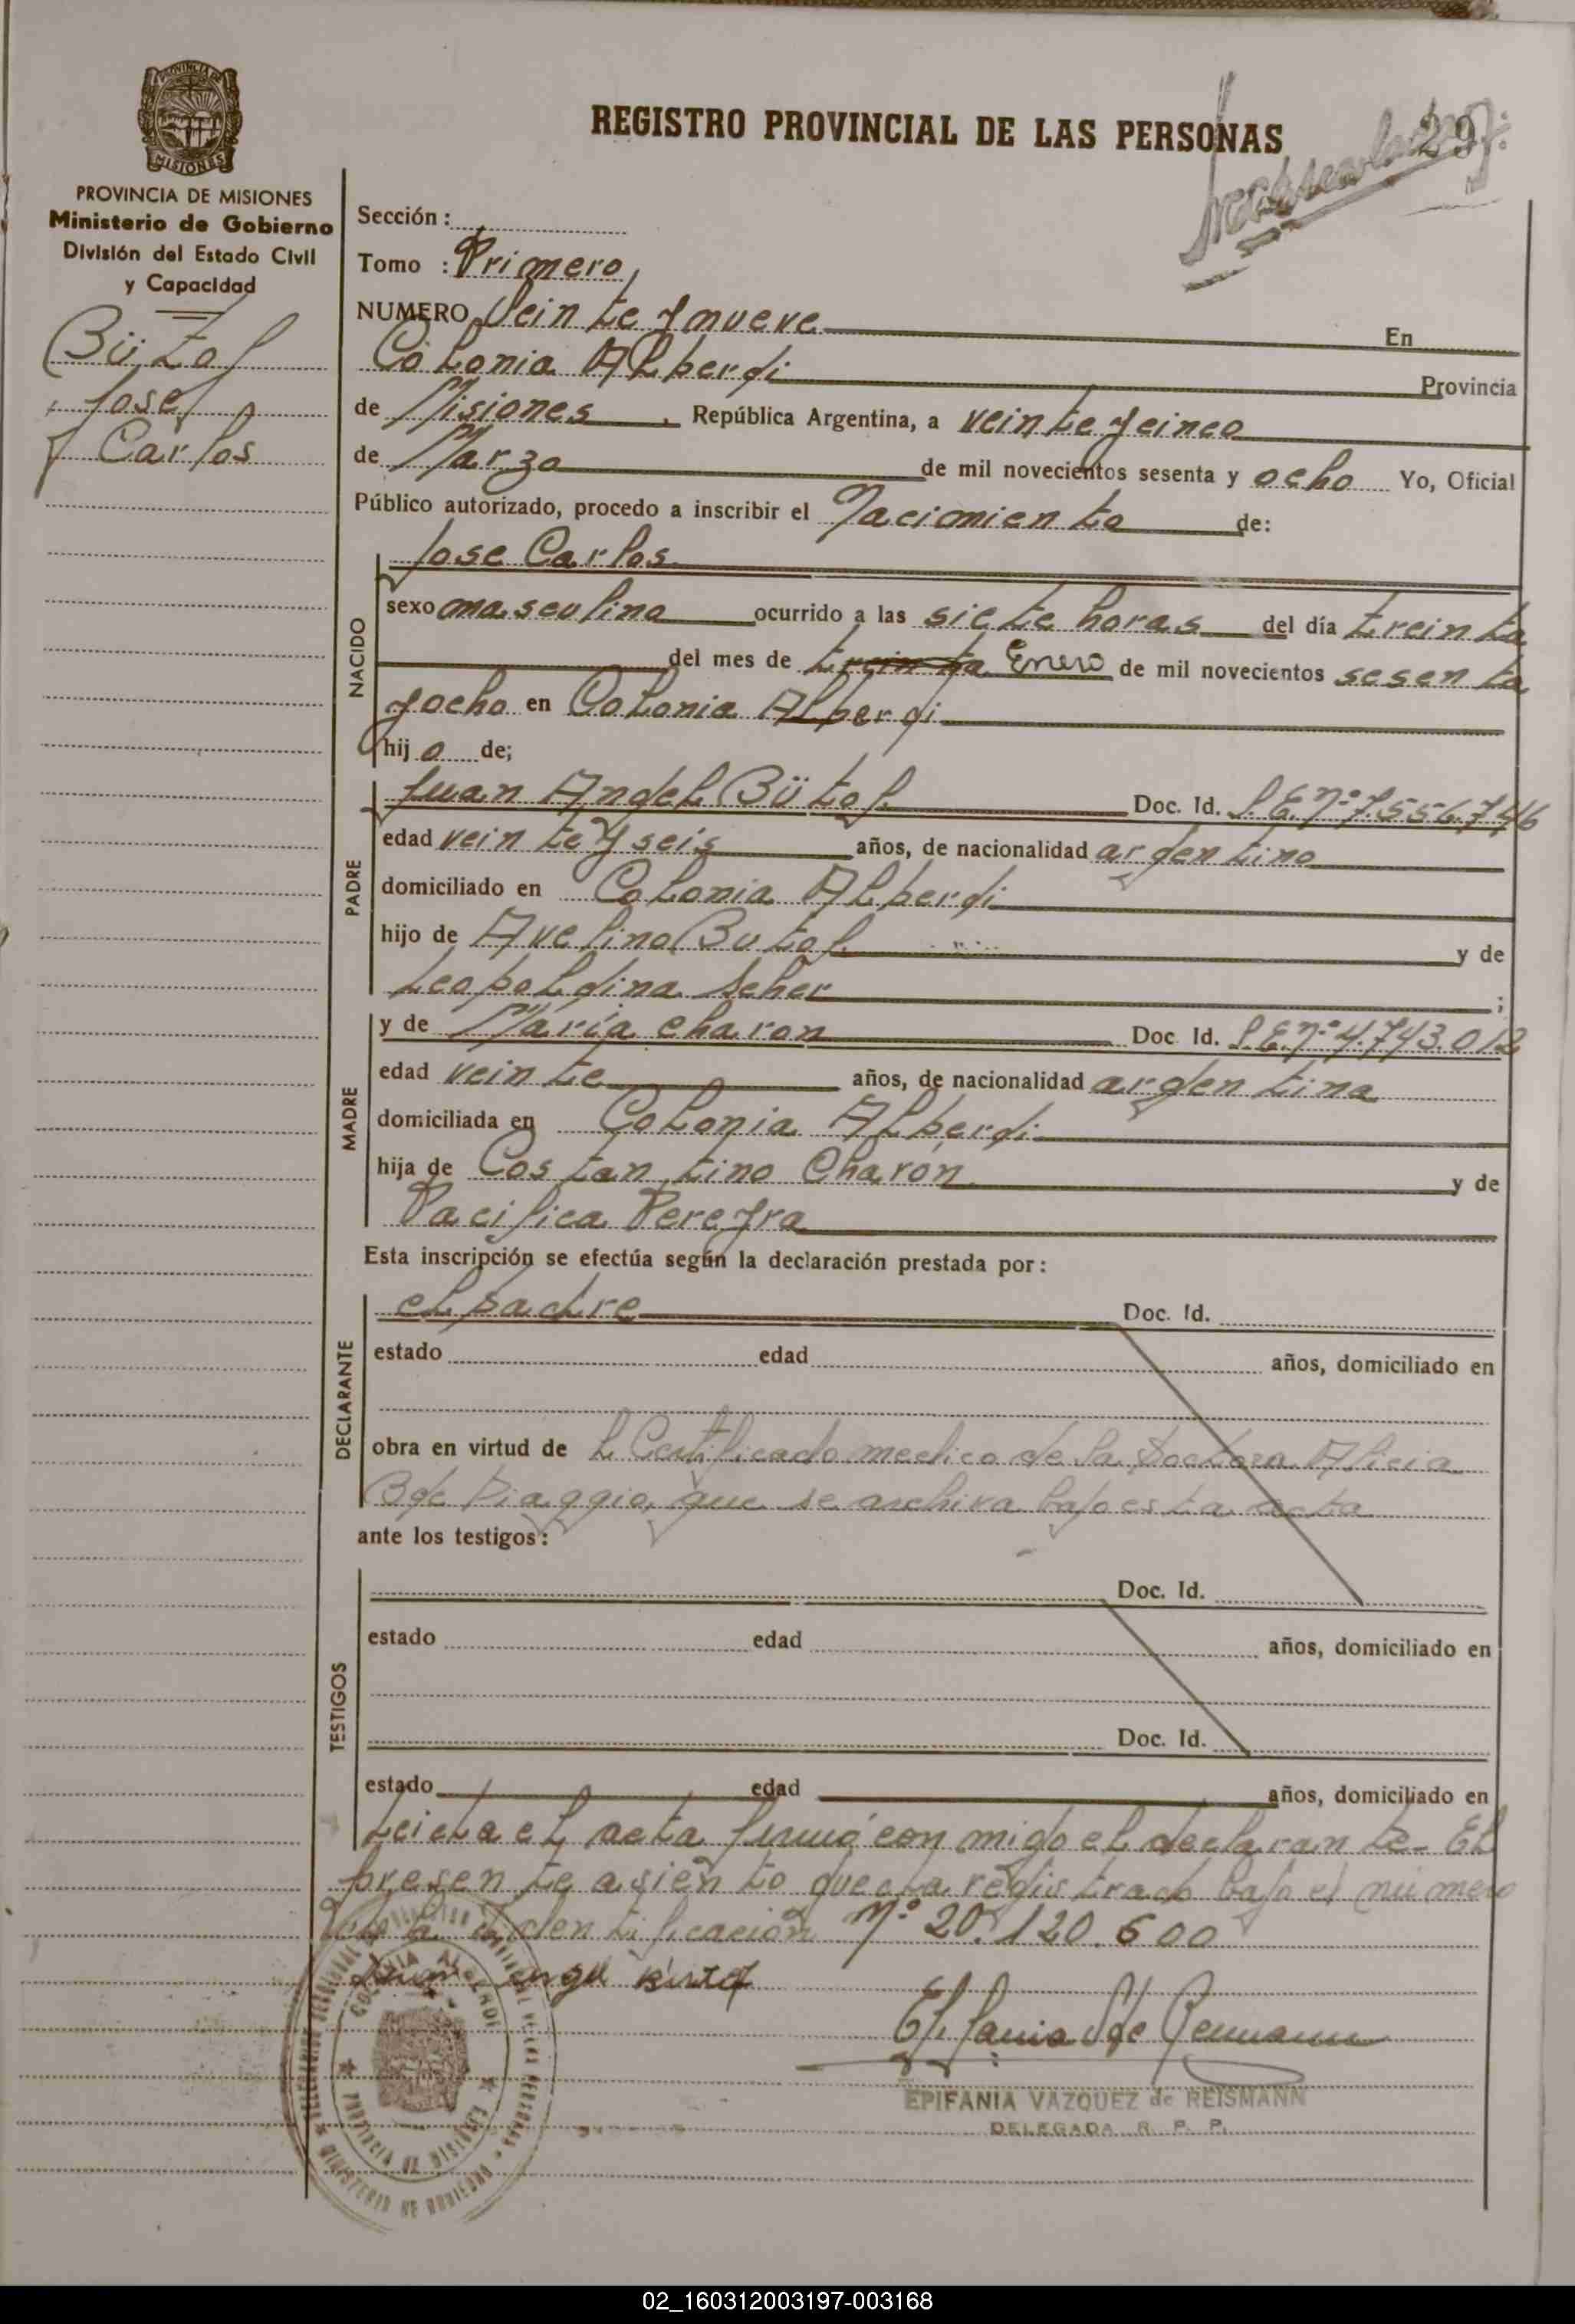 REGISTRO PROVINCIAL DE LAS PERSONAS
29
PROVINCIA DE MISIONES
Ministerio de Gobierno
División del Estado Civil
y Capacidad
Bütof
Jose
Carlos
Sección :
Tomo : Primero
NUMERO Veinte y nueve En
Colonia Alberdi Provincia
de Misiones, República Argentina, a veinte y cinco
de Marzo de mil novecientos sesenta y ocho Yo, Oficial
Público autorizado, procedo a inscribir el Nacimiento de:
Jose Carlos
NACIDO
sexo masculino ocurrido a las siete horas del día treinta
del mes de treinta Enero de mil novecientos sesenta
y ocho en Colonia Alberdi
hij o de;
PADRE
Juan Angel Bütof Doc. Id. L.E.Nº 7.556.746
edad veinte y seis años, de nacionalidad argentino
domiciliado en Colonia Alberdi
hijo de Avelino Butof y de
Leopoldina Scher ;
MADRE
y de María Charon Doc. Id. L.E.Nº 4.743.012
edad veinte años, de nacionalidad argentina
domiciliada en Colonia Alberdi
hija de Costantino Charón y de
Pacifica Pereyra
Esta inscripción se efectúa según la declaración prestada por:
DECLARANTE
el padre Doc. Id.
estado edad años, domiciliado en
obra en virtud de l Certificado medico de la Doctora Alicia
B de Piaggio, que se archiva bajo esta acta
ante los testigos:
TESTIGOS
Doc. Id.
estado edad años, domiciliado en
Doc. Id.
estado edad años, domiciliado en
Leida el acta firmó con migo el declarante - El
presente asiento queda registrado bajo el numero
de identificación Nº 20.120.600
Juan Angel Bütof
EPIFANIA VAZQUEZ de REISMANN
DELEGADA R. P. P.
02_160312003197-003168